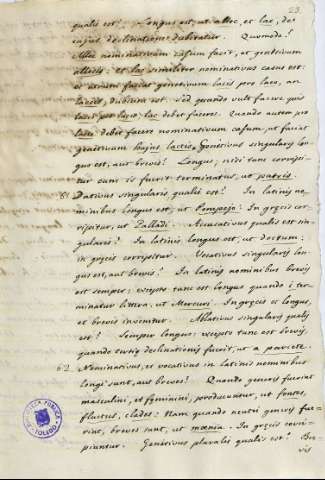 23.
qualis est? Longus est, ut allec, et lac, de
cujus declinatione dubitatur. Quomodo?
Allec nominativum casum facit, et genitivum
allecis: et lac similiter nominativus casus est:
et utrum faciat genitivum lacis pro laco, an
lactis, dubium est. Sed quando vult facere quis
lacis pro lacio, lac debet facere. Quando autem pro
lacte debet facere nominativum casum, ut faciat
genitivum hujus lactis. Genitivus singularis lon
gus est, aut brevis? Longus, nisi tunc corripi-
tur cum is fuerit terminatus, ut patris.
61. Dativus singularis qualis est? In latinis no-
minibus longus est, ut Pompejo: In gręcis cor-
ripitur, ut Palladi. Accusativus qualis est sin-
gularis? In latinis longus est, ut doctum:
in gręcis corripitur. Vocativus singularis lon
gus est, aut brevis? In latinis nominibus brevis
est semper; excepto tunc est longus quando i ter-
minatur littera, ut Mercuri. In gręcis et longus,
et brevis invenitur. Ablativus singularis qualis
est? Semper longus: excepto tunc est brevis,
quando tertię declinationis fuerit, ut a pariete.
62. Nominativus, et vocativus in latinis nominibus
longi sunt, aut breves? Quando generis fuerint
masculini, et fęminini, producuntur, ut fontes,
fluctus, clades: Nam quando neutri generis fue-
rint, breves sunt, ut mœnia. In gręcis corri-
piuntur. Genitivus pluralis qualis est? Bre-
vis
BIBLIOTECA PUBLICA
TOLEDO